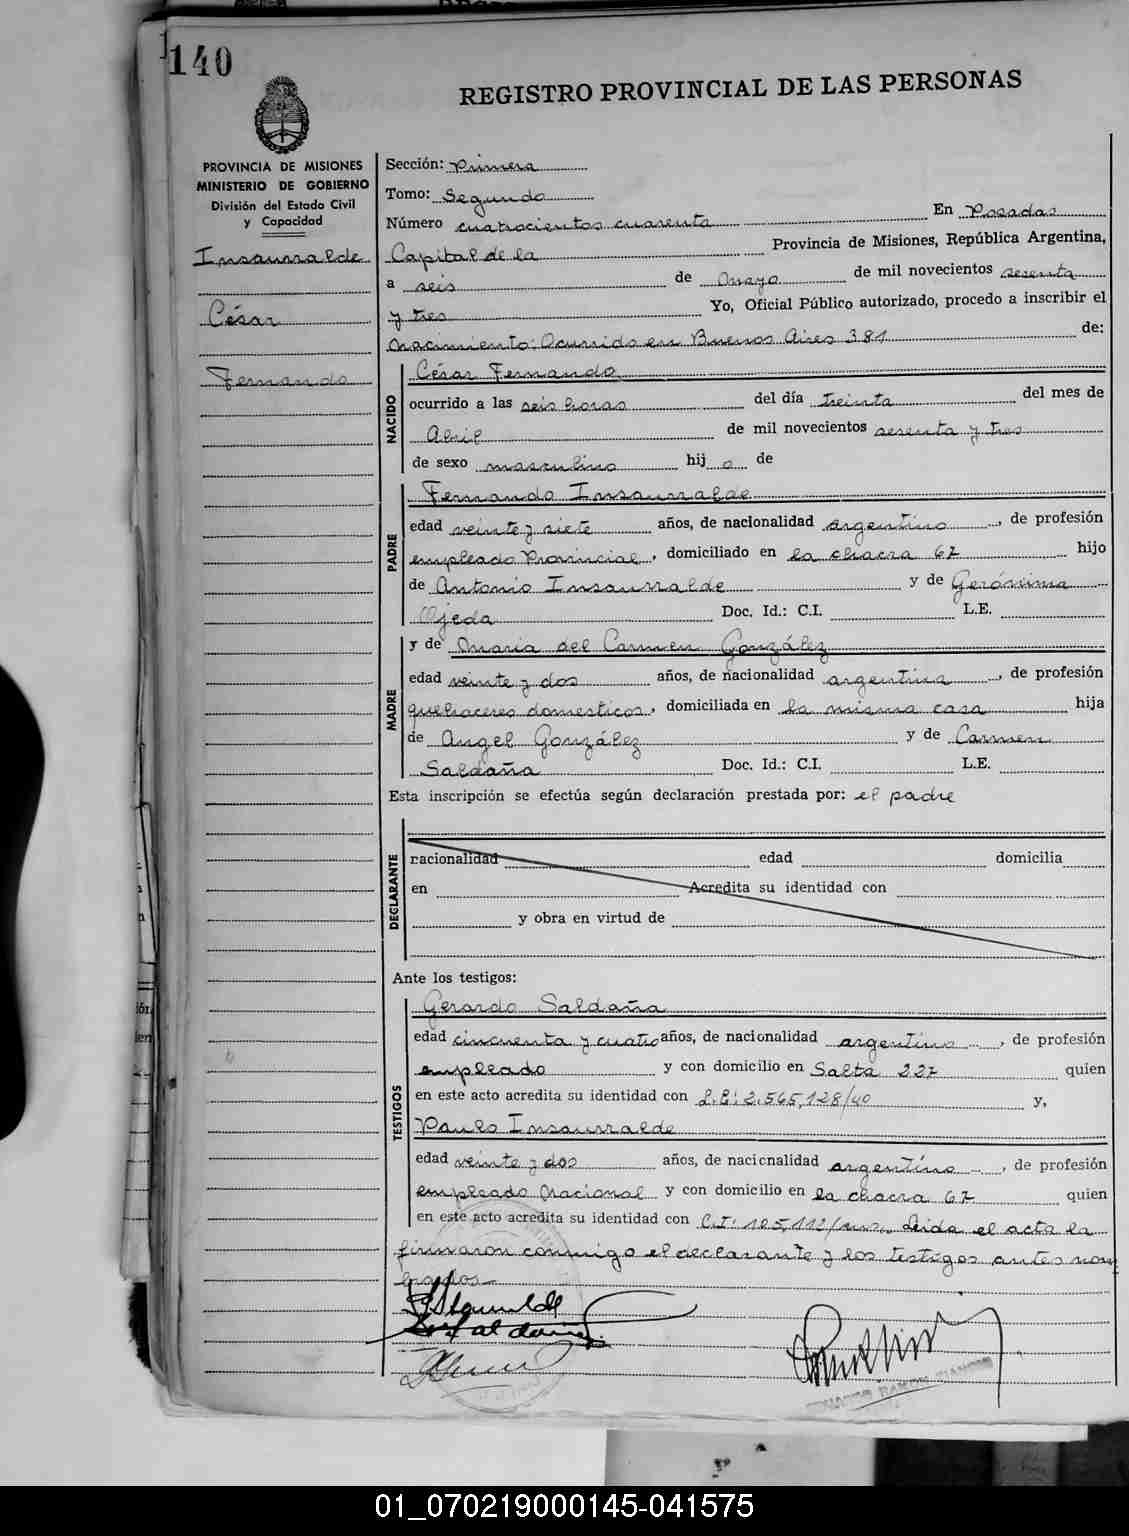 140
REGISTRO PROVINCIAL DE LAS PERSONAS
PROVINCIA DE MISIONES
MINISTERIO DE GOBIERNO
División del Estado Civil
y Capacidad
Insaurralde
César
Fernando
Sección: Primera
Tomo: Segundo
Número cuatrocientos cuarenta En Posadas
Capital de la Provincia de Misiones, República Argentina,
a seis de Mayo de mil novecientos sesenta
y tres Yo, Oficial Público autorizado, procedo a inscribir el
Nacimiento: Ocurrido en Buenos Aires 381 de:
NACIDO
César Fernando
ocurrido a las seis horas del día treinta del mes de
Abril de mil novecientos sesenta y tres
de sexo masculino hij o de
PADRE
Fernando Insaurralde
edad veinte y siete años, de nacionalidad argentino, de profesión
empleado Provincial, domiciliado en la chacra 67 hijo
de Antonio Insaurralde y de Gerónima
Ojeda Doc. Id.: C.I. L.E.
MADRE
y de María del Carmen González
edad veinte y dos años, de nacionalidad argentina, de profesión
quehaceres domesticos, domiciliada en la misma casa hija
de Angel González y de Carmen
Saldaña Doc. Id.: C.I. L.E.
Esta inscripción se efectúa según declaración prestada por: el padre
DECLARANTE
nacionalidad edad domicilia
en Acredita su identidad con
y obra en virtud de
Ante los testigos:
TESTIGOS
Gerardo Saldaña
edad cincuenta y cuatro años, de nacionalidad argentino, de profesión
empleado y con domicilio en Salta 227 quien
en este acto acredita su identidad con L.E: 2.565,128/40 y,
Paulo Insaurralde
edad veinte y dos años, de nacionalidad argentino, de profesión
empleado Nacional y con domicilio en la chacra 67 quien
en este acto acredita su identidad con C.I: 105,112/ Leida el acta la
firmaron conmigo el declarante y los testigos antes nom
brados
01_070219000145-041575